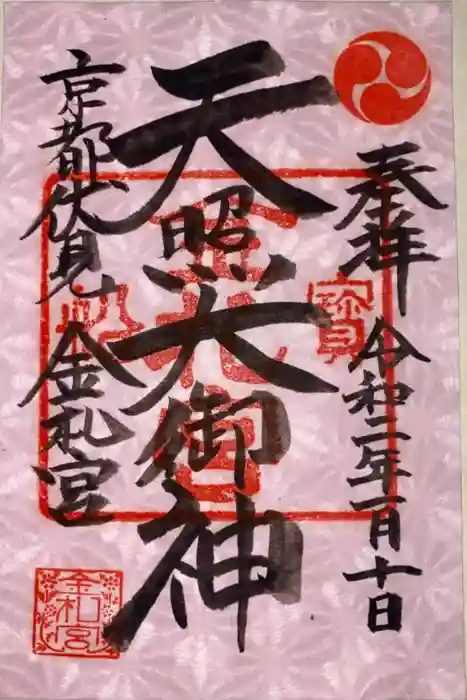 奉拝 令和二年一月十日
天照大御神
京都伏見 金札宮
寶
金札宮
金札宮